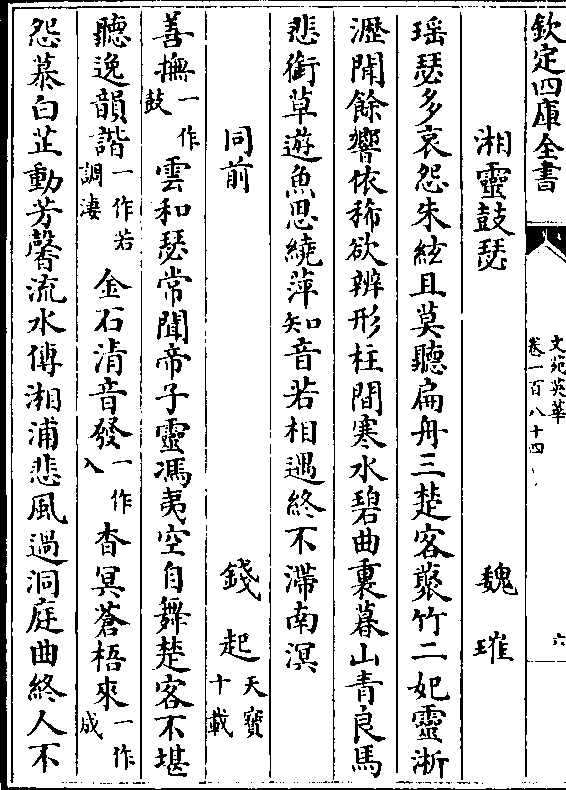 欽定四庫全書
文苑英華
卷一百八十四
六
湘靈鼓瑟 魏璀
瑶瑟多哀怨朱絃且莫聽扁舟三楚客藂竹二妃靈淅
瀝閒餘響依稀欲辨形柱間寒水碧曲裏暮山青良馬
悲銜草遊魚思繞萍知音若相遇終不滯南溟
同前 錢起天寶十載
善撫一作鼓雲和瑟常聞帝子靈馮夷空自舞楚客不堪
聽逸韻諧一作若調淒金石清音發一作入杳冥蒼梧來一作成
怨慕白芷動芳馨流水傳湘浦悲風過洞庭曲終人不